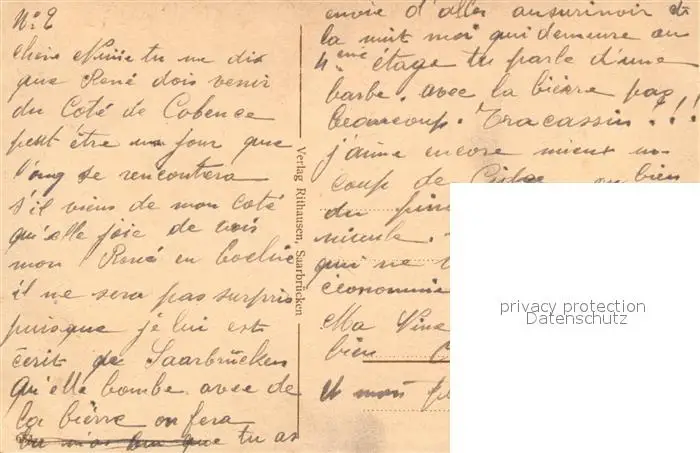 No 2
chère Ninie tu me dis
que René dois venir
du Coté de Cobence
peut être un jour que
l'ong se rencontrera
s'il viens de mon coté
qu'elle joie de vois
mon René en
il ne sera pas surpris
puisque je lui est
ècrit de Saarbrücken
qu'elle bombe avec de
la bièrre on fera
que tu as
Verlag Rithausen, Saarbrücken
envie d'aller
la nuit moi qui demeure au
4 ème étage tu parle d'une
barbe. avec la bièrre pas
beaucoup. Tracassin!!!
j'aime encore mieux un
coup de ou bien
du
qui ne
économie
Ma
bien
et mon
privacy protection
Datenschutz